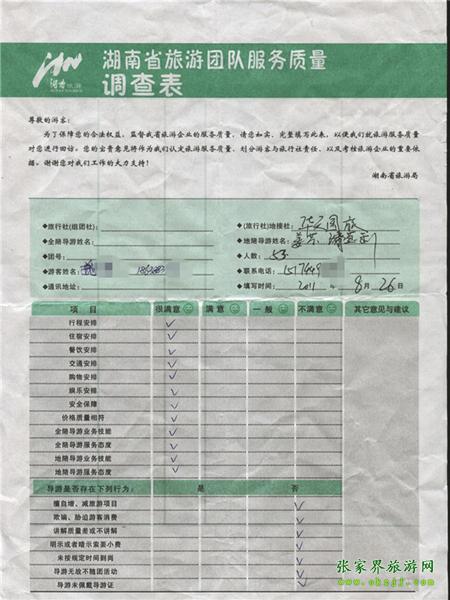 湖南旅游
湖南省旅游团队服务质量
调查表
尊敬的游客:
为了保障您的合法权益,监督我省旅游企业的服务质量,请您如实、完整填写此表,以便我们就旅游服务质量
对您进行回访。您的宝贵意见将作为我们认定旅游服务质量,划分游客与旅行社责任,以及考核旅游企业的重要依
据。谢谢您对我们工作的大力支持!
湖南省旅游局
◆旅行社(组团社): ◆(旅行社)地接社: 华天国旅
◆全陪导游姓名: ◆地陪导游姓名:
◆团号: ◆人数: 53
◆游客姓名: ◆联系电话:
◆通讯地址: ◆填写时间: 2011 年 8 月 26 日
项 目 很满意 满意 一般 不满意 其它意见与建议
行程安排 ✓
住宿安排 ✓
餐饮安排 ✓
交通安排 ✓
购物安排 ✓
娱乐安排 ✓
安全保障 ✓
价格质量相符 ✓
全陪导游业务技能 ✓
全陪导游服务态度 ✓
地陪导游业务技能 ✓
地陪导游服务态度 ✓
导游是否存在下列行为: 是 否
擅自增、减旅游项目 ✓
欺骗、胁迫游客消费 ✓
讲解质量差或不讲解 ✓
明示或者暗示索要小费 ✓
未按规定时间到岗 ✓
导游无故不随团活动 ✓
导游未佩戴导游证 ✓
张家界旅游网
www.okzjj.com